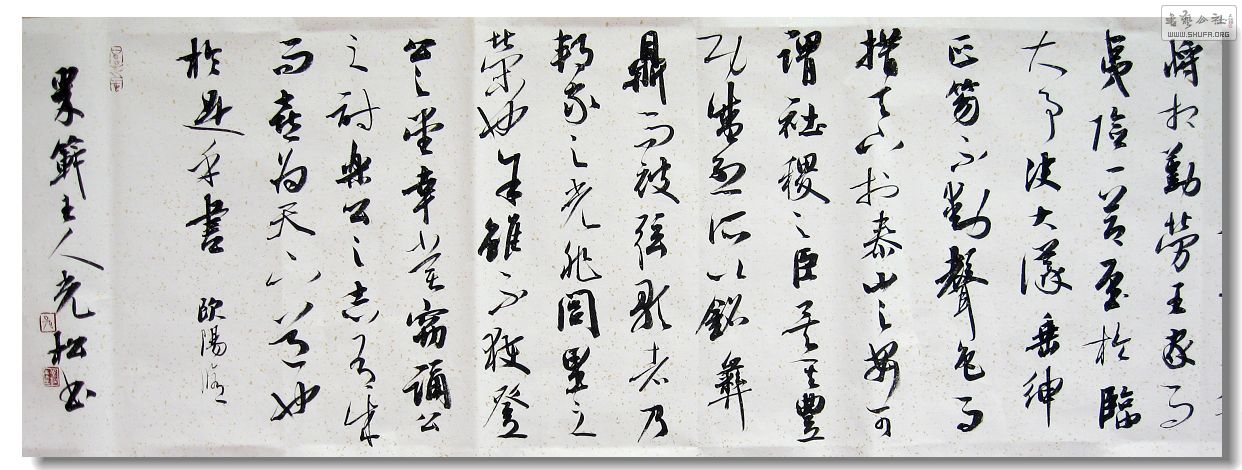 將相勤勞王家而
夷險一節至於臨
大事決大議垂紳
正笏不動聲色而
措天下於泰山之安可
謂社稷之臣矣其豐
功盛烈所以銘彝
鼎而被弦歌者乃
邦家之光非閭里之
榮也余雖不獲登
公之堂幸嘗竊誦公
之詩樂公之志有成
而喜為天下道也
於是乎書 歐陽脩
主人光松書
書藝公社
WWW.SHUFA.ORG